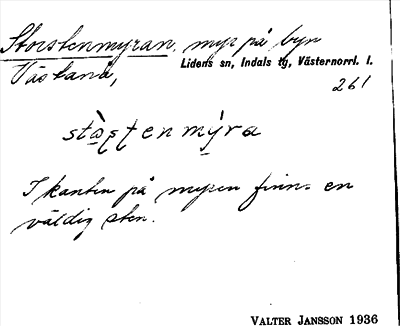 Storstenmyran, myr på byn
Västanå,
Lidens sn, Indals tg, Västernorrl. l.
261
I kanten på myren finns en
väldig sten.
VALTER JANSSON 1936